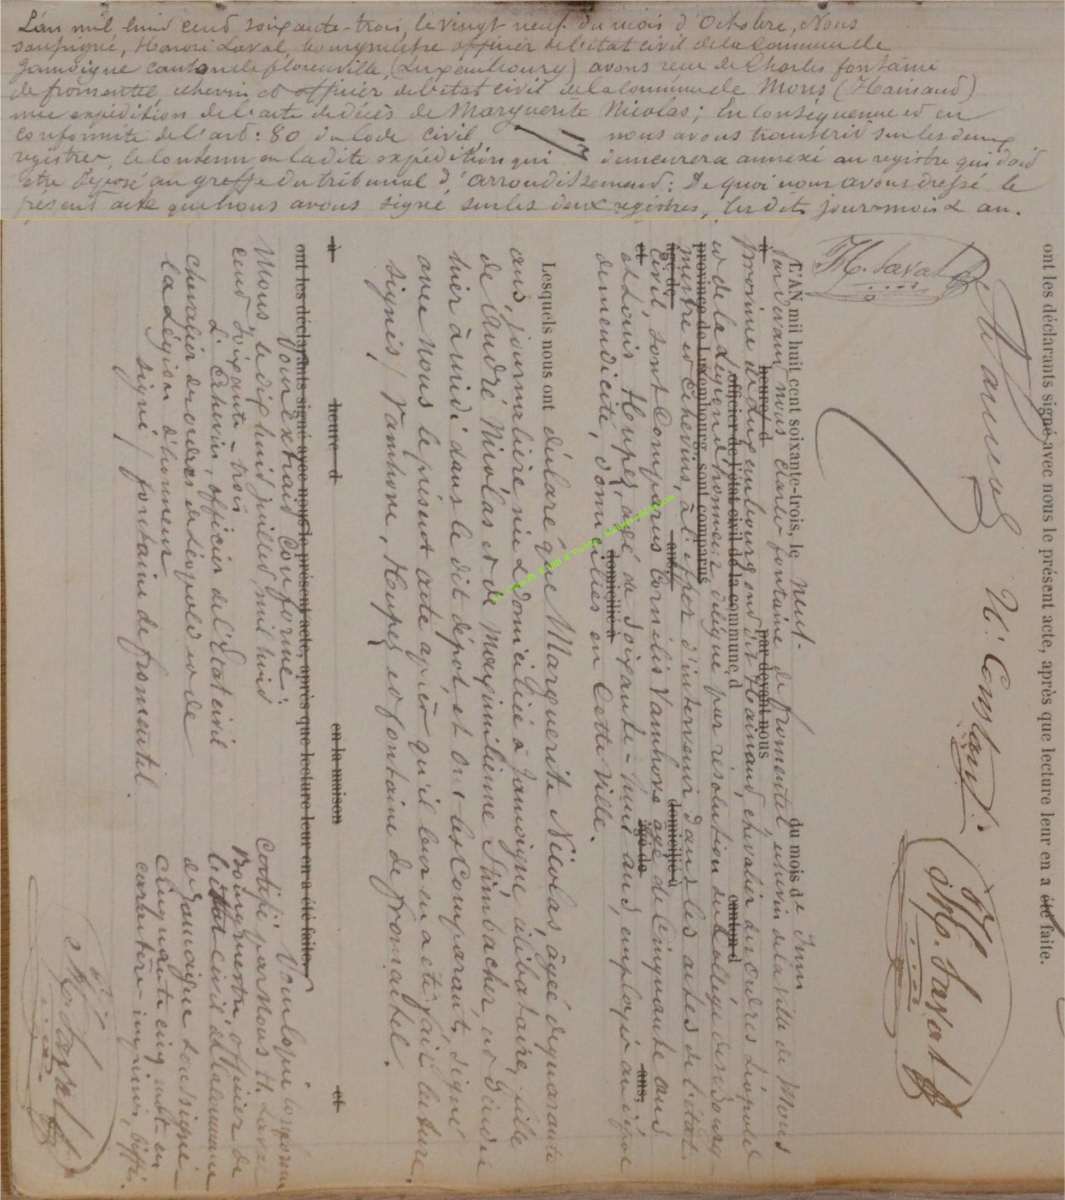 L'an mil huit cent soixante-trois, le vingt neuf du mois d'Octobre, Nous
soussigné, Honoré Laval, bourgmestre officier de l'état civil de la Commune de
Jamoigne canton de florenville, (Luxembourg) avons reçu de Charles fontaine
de fromentel, echevin et officier de l'état civil de la commune de Mons (Hainaud)
une expédition de l'acte de décès de Marguerite Nicolas; En conséquence et en
conformité de l'art: 80 du Code Civil, nous avons transcrit sur les deux
registres, le contenu en la dite expédition qui demeurera annexé au registre qui doit
être déposé au greffe du tribunal d'arrondissement: De quoi nous avons dressé le
présent acte que nous avons signé sur les deux registres, les dits jour mois & an.
ont les déclarants signé avec nous le présent acte, après que lecture leur en a été faite.
N. Constant
H. Laval
H. Laval
L'AN mil huit cent soixante-trois, le neuf du mois de Juin
par devant nous Charles fontaine de fromentel, echevin de la ville de Mons
à heure d par devant nous canton d
province de Luxembourg, sont comparus
province de Hainaud, chevalier des ordres Léopold
officier de l'état civil de la commune d
et de la Légion d'honneur délégué par résolution du College des
et Echevins, à l'effet d'intervenir dans les actes de l'état
civil, sont Comparus Cornelis Vanhove agé de Cinquante ans
âgé de ans, domicilié à
et Louis Heupes, agé de soixante-un ans, employés au dépot
et âgé de ans, domicilié à
de mendicité, domiciliés en Cette ville.
Lesquels nous ont déclaré que Marguerite Nicolas, âgée de quarante
ans, journalière née & domiciliée à Jamoigne, célibataire, fille
de André Nicolas et de Maximilienne est décédée
hier à midi dans le dit dépot et ont les Comparants, signé
avec nous le présent acte après qu'il leur en a été fait lecture.
signés/ Vanhove, Heupes et fontaine de fromentel.
à heure d en la maison et
ont les déclarants signé avec nous le présent acte, après que lecture leur en a été faite.
Pour extrait Conforme:
Mons, le dix huit juillet mil huit
cent soixante-trois
L'Echevin, officier de l'Etat civil
chevalier des ordres de Léopold et de
la Légion d'honneur
signé/ fontaine de fromentel.
Pour copie conforme
Certifié par nous H. Laval
Bourgmestre officier de
l'état civil de la commune
de Jamoigne soussigné
Cinquante cinq mots en
caractère imprimés, biffés.
H. Laval